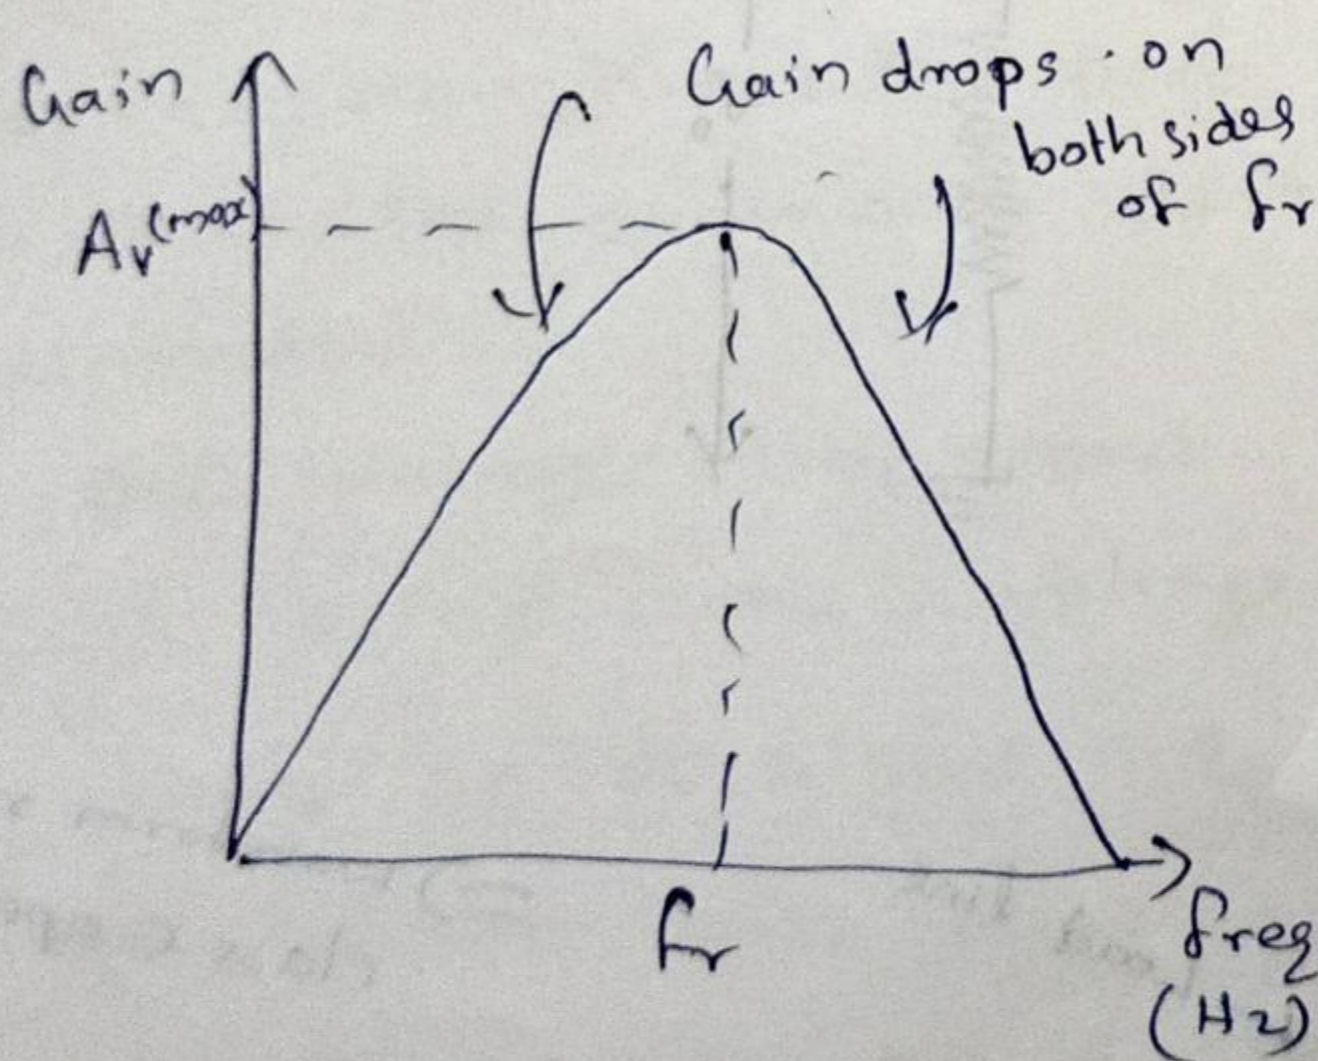 Gain
Gain drops on
both sides
of fr
Av(max)
fr
freq
(Hz)